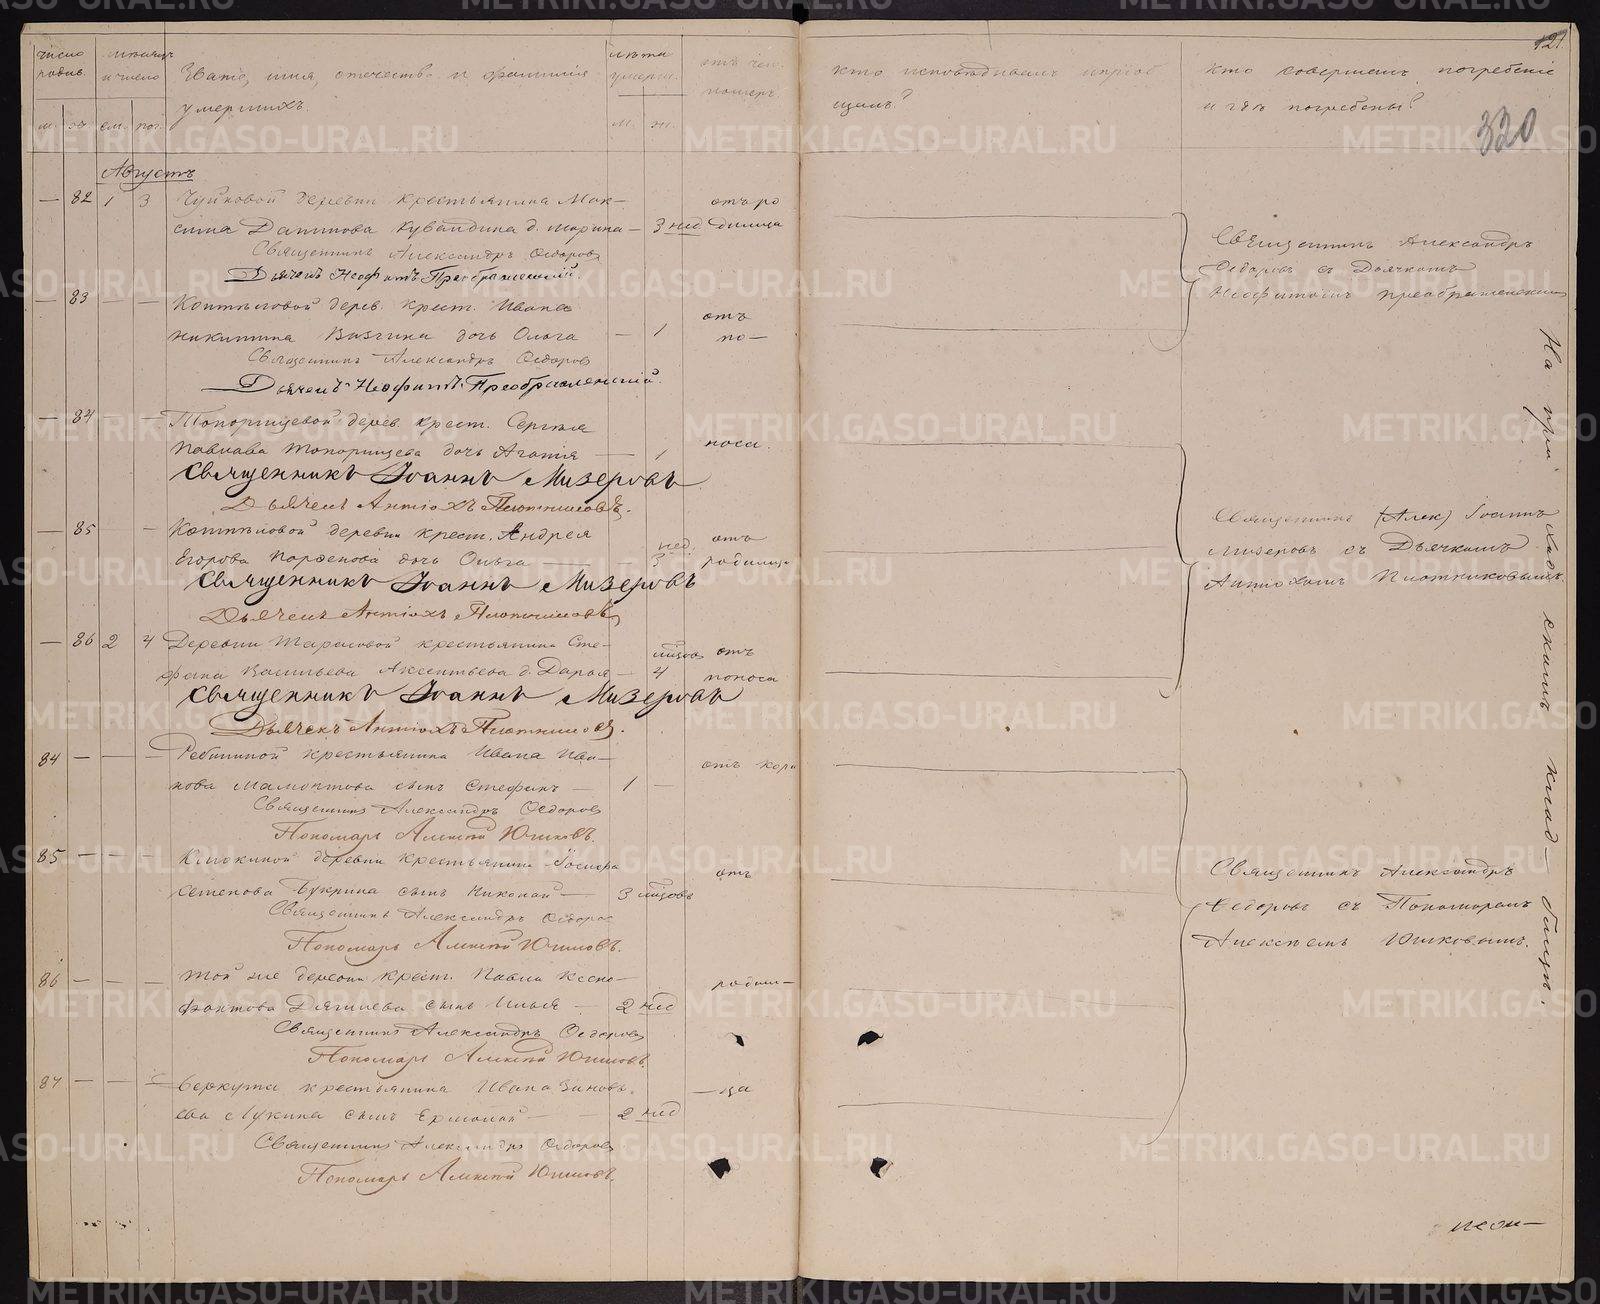 число родив.
мѣсяцъ и число
Званіе, имя, отечество и фамилія умершихъ.
лѣта умерш.
отъ чего померъ.
м. ж. см. пог.
м. ж.
Августъ
— 82 1 3 Чуйковой деревни крестьянина Мак-
сима Данилова Кувандина д. Марина — 3 нед
отъ ро
димца
Священникъ Александръ Ѳедоровъ
Дьячекъ Неофитъ Преображенскій.
— 83 — — дерев. крест. Ивана
Никитина дочь Ольга — 1
отъ
по—
Священникъ Александръ Ѳедоровъ
Дьячекъ Неофитъ Преображенскій.
— 84 — Топорищевой дерев. крест. Сергѣя
Павлова Топорищева дочь Агафія — 1
носа.
Священникъ Іоаннъ Мизеровъ
Дьячекъ Антіохъ Плотниковъ.
— 85 — деревни крест. Андрея
Егорова дочь Ольга — нед. 3
отъ
родимца
Священникъ Іоаннъ Мизеровъ
Дьячекъ Антіохъ Плотниковъ
— 86 2 4 Деревни Тарасовой крестьянина Сте-
фана Васильева д. Дарья — мѣсцовъ 4
отъ
поноса
Священникъ Іоаннъ Мизеровъ
Дьячекъ Антіохъ Плотниковъ.
84 — — — крестьянина Ивана Ива-
нова Мамонтова сынъ Стефанъ — 1 —
отъ кори
Священникъ Александръ Ѳедоровъ
Пономарь Алексѣй Юшковъ.
85 — — — деревни крестьянина
Семенова Букрина сынъ Николай — 3 мѣсцовъ
отъ
Священникъ Александръ Ѳедоровъ
Пономарь Алексѣй Юшковъ.
86 — — — той же деревни крест. Павла Ксено-
фонтова Дягилева сынъ Илья — 2 нед
родим—
Священникъ Александръ Ѳедоровъ
Пономарь Алексѣй Юшковъ.
87 — — — Беркута крестьянина Ивана Зиновь-
ева Лукина сынъ Ермолай — 2 нед
—ца
Священникъ Александръ Ѳедоровъ
Пономарь Алексѣй Юшковъ.
кто исповѣдывалъ и пріоб
щалъ?
кто совершалъ погребеніе
и гдѣ погребены?
121
320
Священникъ Александръ
Ѳедоровъ съ Дьячкомъ
Неофитомъ Преображенскимъ
Священникъ (Алек) Іоаннъ
Мизеровъ съ Дьячкомъ
Антіохомъ Плотниковымъ.
Священникъ Александръ
Ѳедоровъ съ Пономаремъ
Алексѣемъ Юшковымъ.
На приходскимъ клад—бищѣ.
METRIKI.GASO-URAL.RU